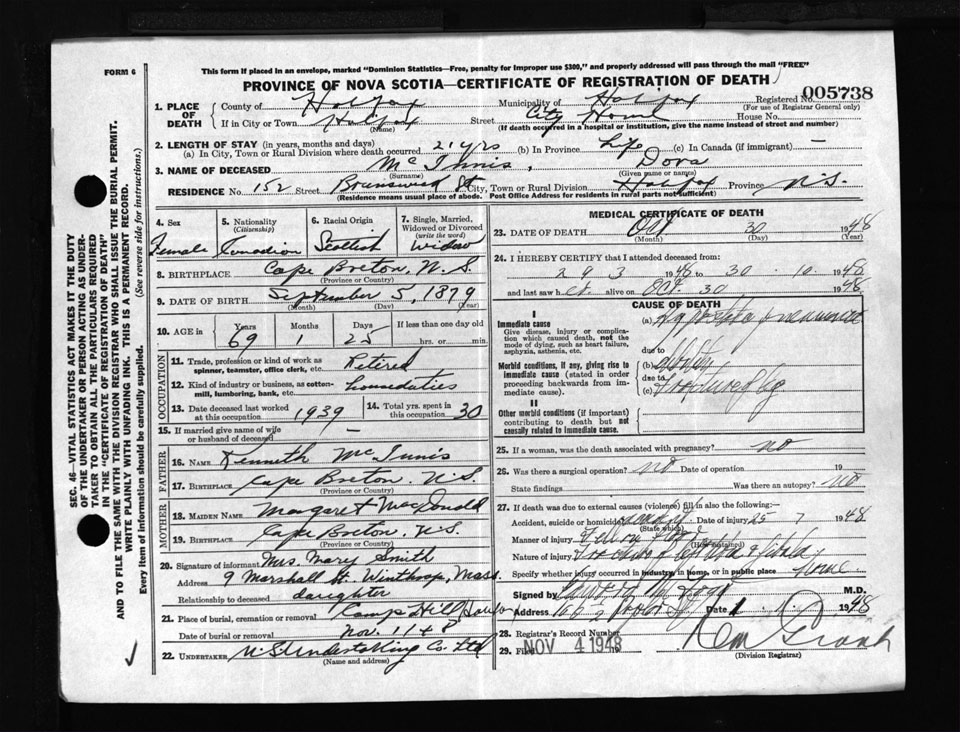 FORM 6
This form if placed in an envelope, marked "Dominion Statistics—Free, penalty for improper use $300," and properly addressed will pass through the mail "FREE"
PROVINCE OF NOVA SCOTIA—CERTIFICATE OF REGISTRATION OF DEATH
1. PLACE OF DEATH County of Halifax Municipality of Halifax Registered No. 005738
(For use of Registrar General only)
If in City or Town Halifax Street City Home House No.
(Name) (If death occurred in a hospital or institution, give the name instead of street and number)
2. LENGTH OF STAY (in years, months and days)
(a) In City, Town or Rural Division where death occurred 21 yrs (b) In Province Life (c) In Canada (if immigrant) —
3. NAME OF DECEASED Mc Innis, Dora
(Surname) (Given name or names)
RESIDENCE No. 152 Street Brunswick St. City, Town or Rural Division Halifax Province N.S.
(Residence means usual place of abode. Post Office Address for residents in rural parts not sufficient)
4. Sex 5. Nationality (Citizenship) 6. Racial Origin 7. Single, Married, Widowed or Divorced (write the word)
Female Canadian Scottish Widow
8. BIRTHPLACE Cape Breton, N.S.
(Province or Country)
9. DATE OF BIRTH September 5, 1879
(Month) (Day) (Year)
10. AGE in Years Months Days If less than one day old
69 1 25 hrs. or min.
OCCUPATION
11. Trade, profession or kind of work as spinner, teamster, office clerk, etc. Retired
12. Kind of industry or business, as cotton-mill, lumbering, bank, etc. homeduties
13. Date deceased last worked at this occupation 1939 14. Total yrs. spent in this occupation 30
15. If married give name of wife or husband of deceased —
FATHER
16. NAME Kenneth Mc Innis
17. BIRTHPLACE Cape Breton, N.S.
(Province or Country)
MOTHER
18. MAIDEN NAME Margaret MacDonald
19. BIRTHPLACE Cape Breton, N.S.
(Province or Country)
20. Signature of informant Mrs. Mary Smith
Address 9 Marshall St. Winthrop, Mass.
Relationship to deceased daughter
21. Place of burial, cremation or removal Camp Hill
Date of burial or removal Nov. 1 1948
22. UNDERTAKER N.S. Undertaking Co. Ltd
(Name and address)
MEDICAL CERTIFICATE OF DEATH
23. DATE OF DEATH Oct 30 1948
(Month) (Day) (Year)
24. I HEREBY CERTIFY that I attended deceased from:
29 3 1948 to 30 10 1948
and last saw h er alive on Oct. 30 1948
CAUSE OF DEATH
I
Immediate cause
Give disease, injury or complication which caused death, not the mode of dying, such as heart failure, asphyxia, asthenia, etc.
(a)
due to
Morbid conditions, if any, giving rise to immediate cause (stated in order proceeding backwards from immediate cause).
(b)
due to
(c) fracture of leg
II
Other morbid conditions (if important) contributing to death but not causally related to immediate cause.
25. If a woman, was the death associated with pregnancy? no
26. Was there a surgical operation? no Date of operation 19
State findings Was there an autopsy? no
27. If death was due to external causes (violence) fill in also the following:
Accident, suicide or homicide Date of injury 25 7 1948
(State which)
Manner of injury
Nature of injury
Specify whether injury occurred in industry, in home, or in public place home
Signed by M.D.
Address Date 1948
28. Registrar's Record Number
29. Filed NOV 4 1948
(Division Registrar)
SEC. 46—VITAL STATISTICS ACT MAKES IT THE DUTY
OF THE UNDERTAKER OR PERSON ACTING AS UNDERTAKER TO OBTAIN ALL THE PARTICULARS REQUIRED
IN THE "CERTIFICATE OF REGISTRATION OF DEATH"
AND TO FILE THE SAME WITH THE DIVISION REGISTRAR WHO SHALL ISSUE THE BURIAL PERMIT.
WRITE PLAINLY WITH UNFADING INK. THIS IS A PERMANENT RECORD.
Every item of Information should be carefully supplied. (See reverse side for instructions.)